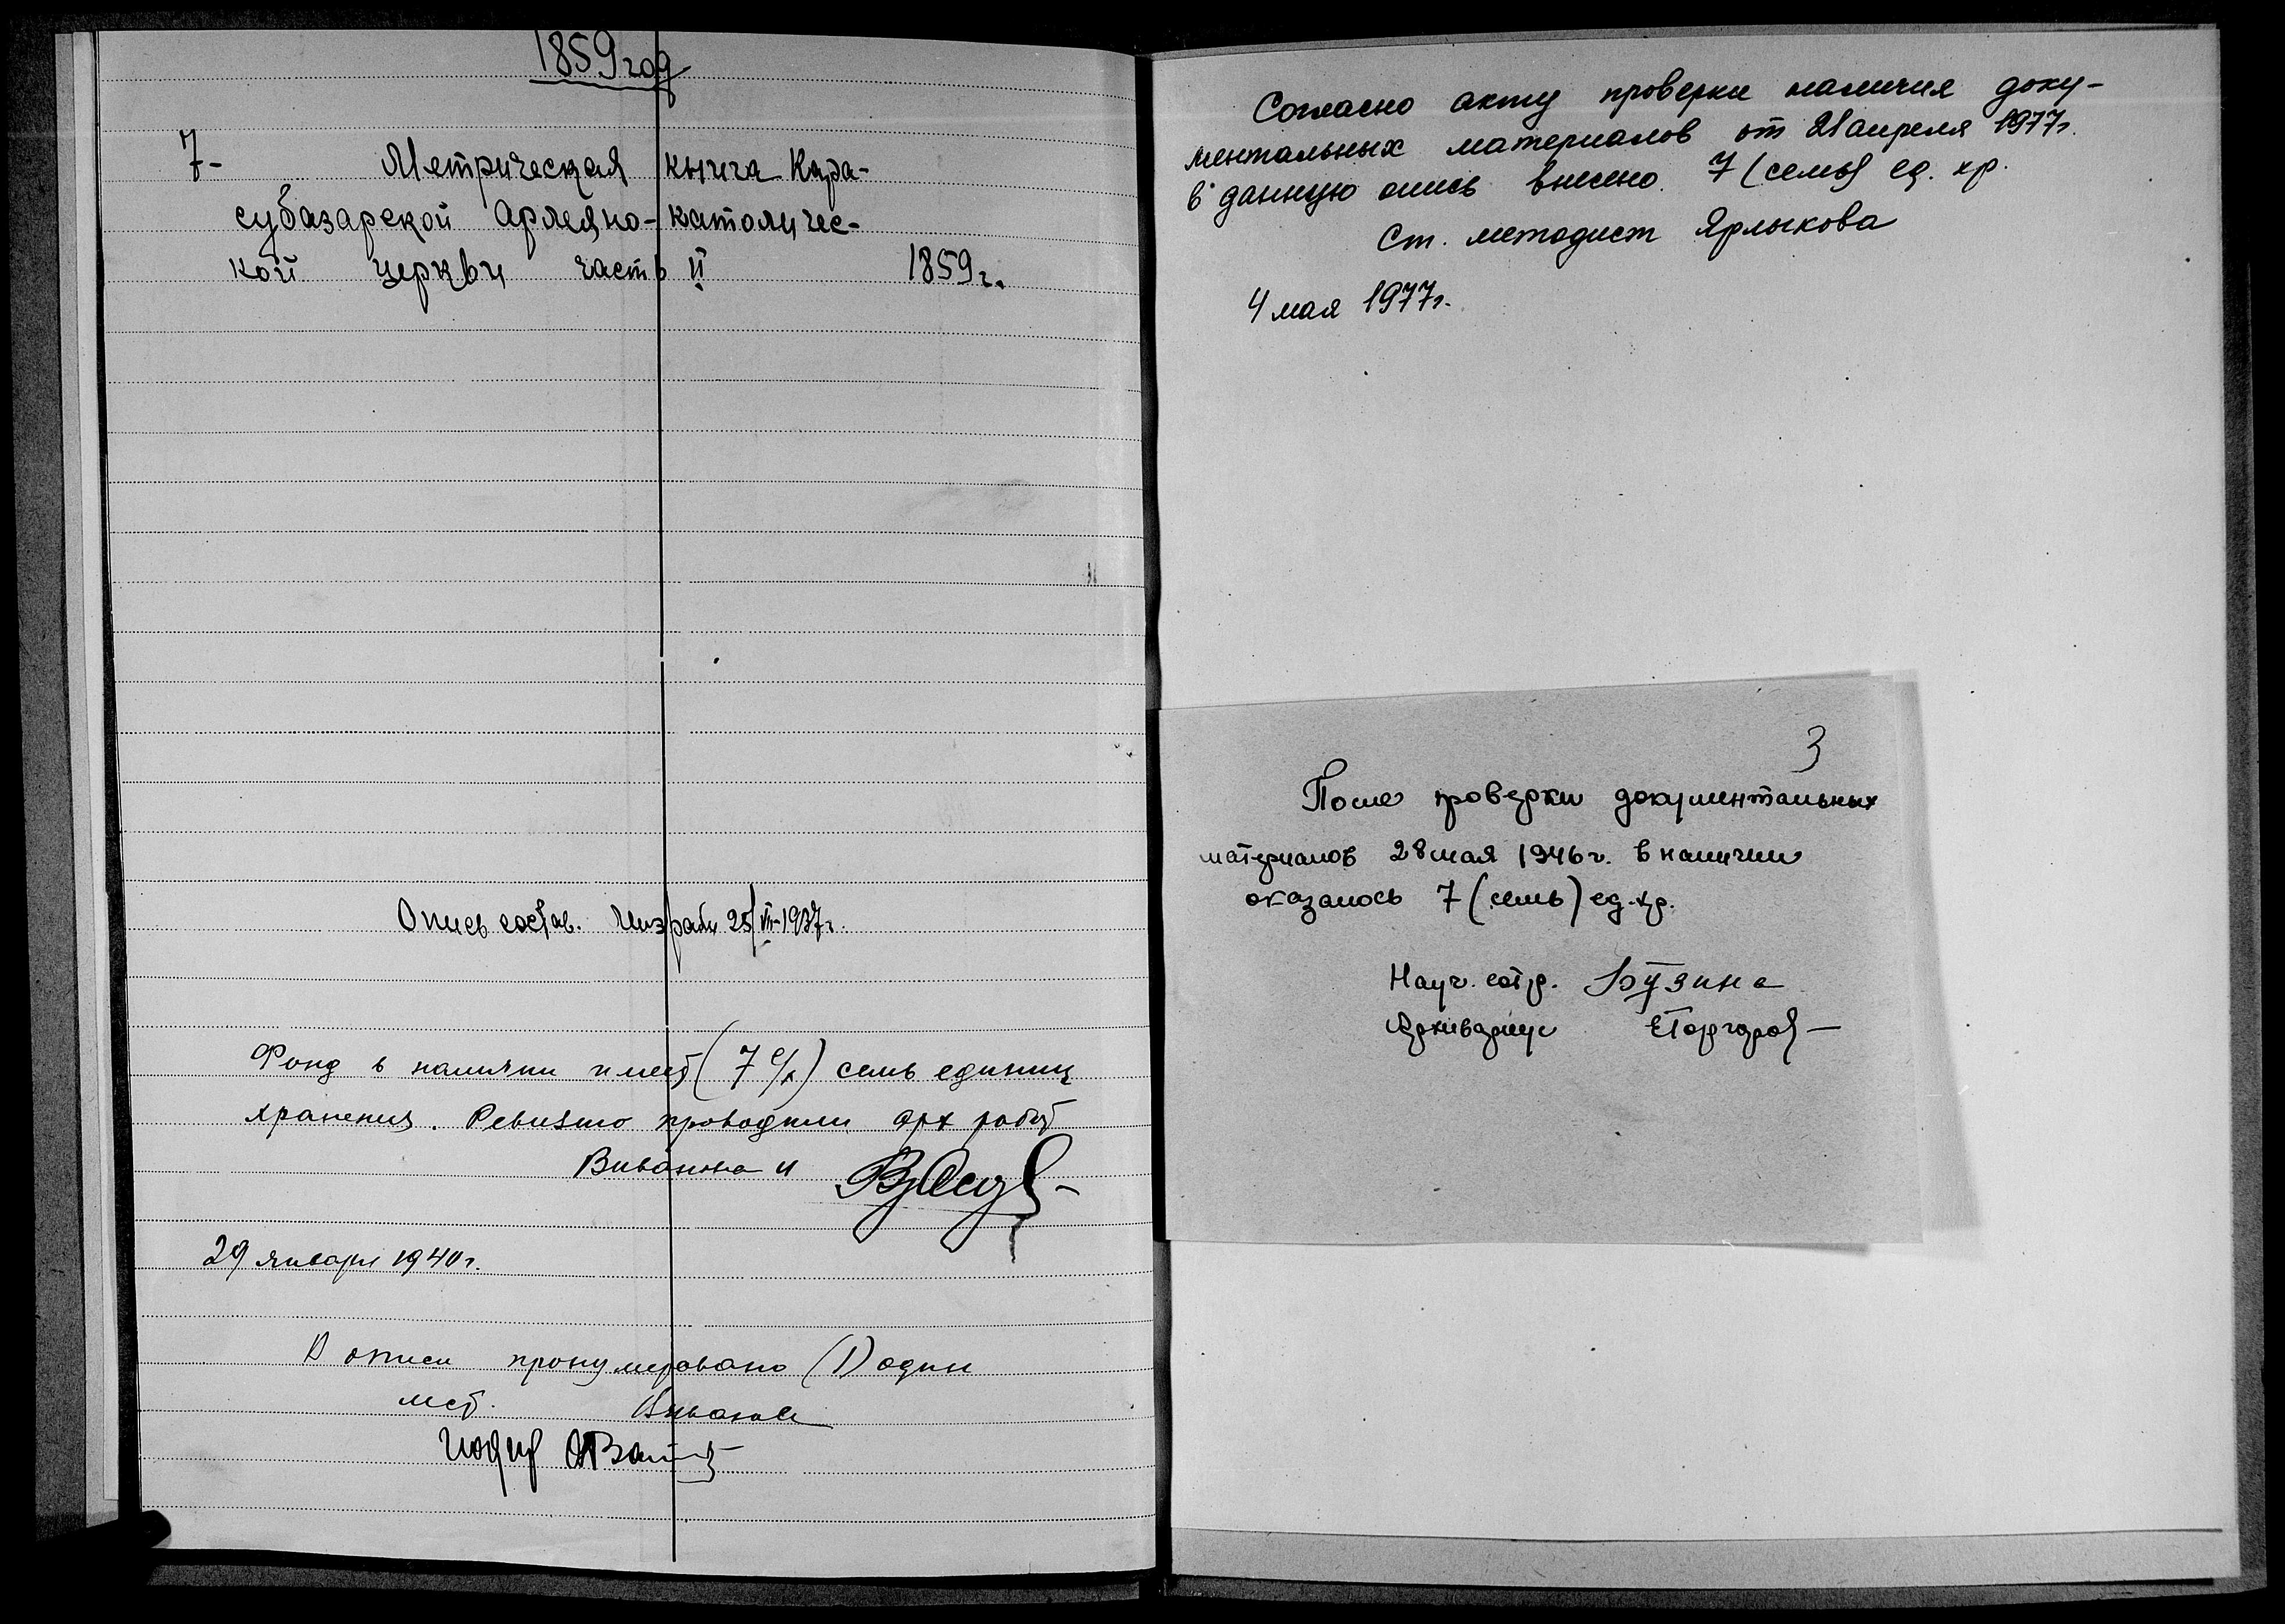 1859 год
7- Метрическая книга Кара-
субазарской армяно-католичес-
кой церкви часть II 1859 г.
Опись состав. 25/VII-1937г.
Фонд в наличии имеет (7 е/х) семь единиц
хранения. Ревизию проводили арх работ
и
29 января 1940 г.
В описи пронумеровано (1) один
лист.
Согласно акту проверки наличия доку-
ментальных материалов от 21 апреля 1977г.
в данную опись внесено 7 (семь) ед. хр.
Ст. методист Ярлыкова
4 мая 1977г.
3
После проверки документальных
материалов 28 мая 1946 г. в наличии
оказалось 7 (семь) ед. хр.
Науч. сотр. Бузина
Архивариус